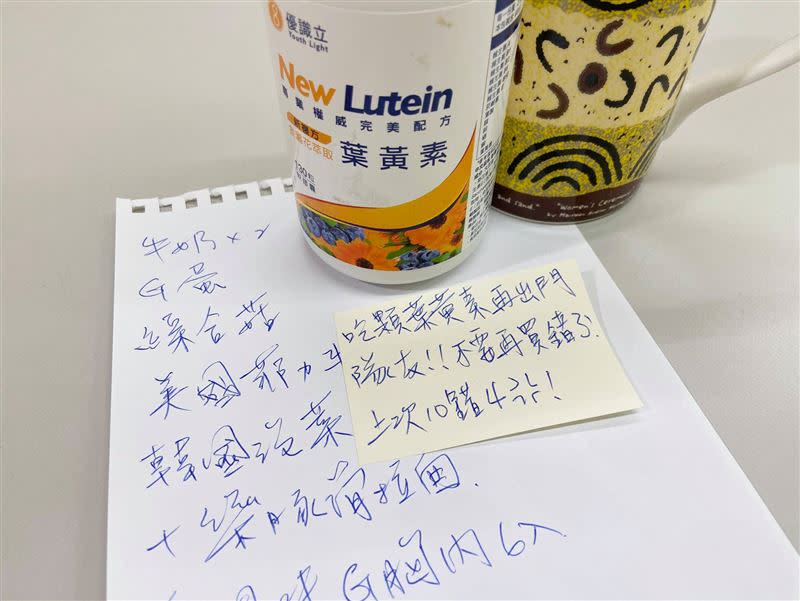 優識立
Youth Light
New Lutein
權威完美配方
新配方
葉黃素
130粒
and Sand."
"Women's Ceremon
牛奶×2
G蛋
綜合菇
美國菲力牛
韓國泡菜
吃顆葉黃素再出門
隊友!!不要再買錯了.
上次10錯4ㄋㄟ!
G胸肉6入